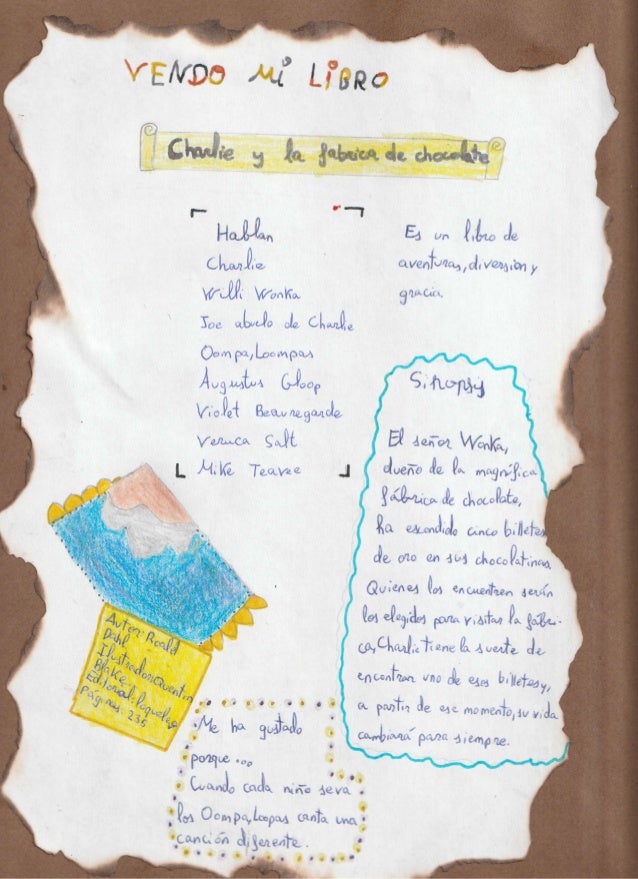 VENDO Mi LiBRO
Charlie y la fabrica de chocolate
Hablan
Charlie
Willi Wonka
Joe abuelo de Charlie
Oompa, Loompas
Augustus Gloop
Violet Beauregarde
Veruca Salt
Mike Teavee
Es un libro de
aventuras, diversion y
gracia.
Sinopsy
El señor Wonka,
dueño de la magnífica
fábrica de chocolate,
ha escondido cinco billetes
de oro en sus chocolatinas
Quienes los encuentren serán
los elegidos para visitar la fábri-
ca, Charlie tiene la suerte de
encontrar uno de esos billetes y,
a partir de ese momento, su vida
cambiará para siempre.
Autor: Roald
Dahl
Ilustrador: Quentin
Blake
Editorial:
Páginas: 235
Me ha gustado
porque...
Cuando cada niño se va
los Oompa, Loopas canta una
canción diferente.